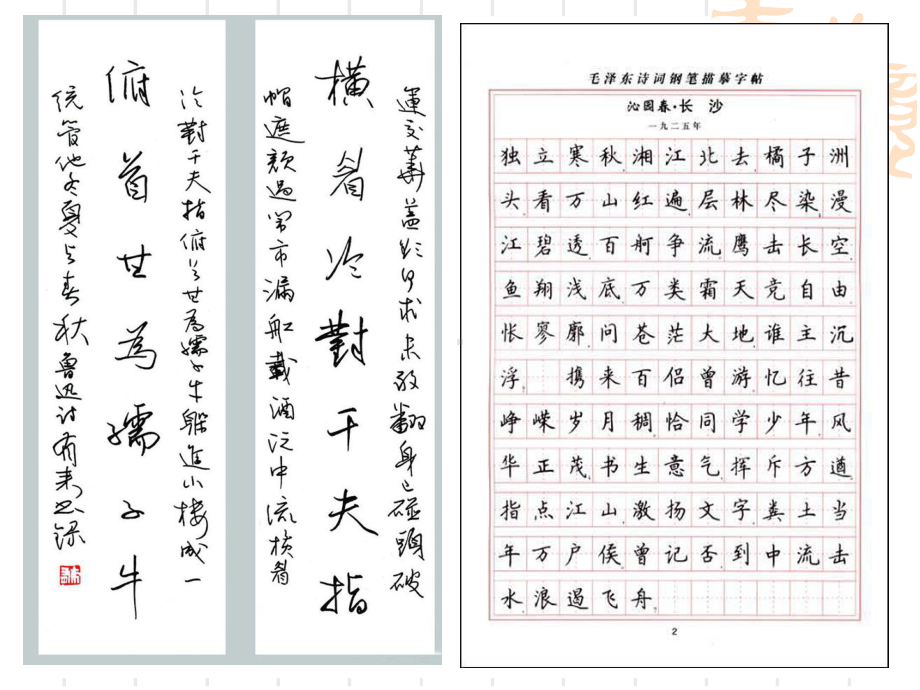 運交華蓋欲何求未敢翻身已碰頭破
橫眉冷對千夫指
帽遮顏過鬧市漏船載酒泛中流橫眉
冷對千夫指俯首甘為孺子牛躲進小樓成一
俯首甘為孺子牛
統管他冬夏与春秋魯迅诗
毛泽东诗词钢笔描摹字帖
沁园春·长 沙
一九二五年
独立寒秋湘江北去橘子洲
头看万山红遍层林尽染漫
江碧透百舸争流鹰击长空
鱼翔浅底万类霜天竞自由
怅寥廓问苍茫大地谁主沉
浮 携来百侣曾游忆往昔
峥嵘岁月稠恰同学少年风
华正茂书生意气挥斥方遒
指点江山激扬文字粪土当
年万户侯曾记否到中流击
水浪遏飞舟
2